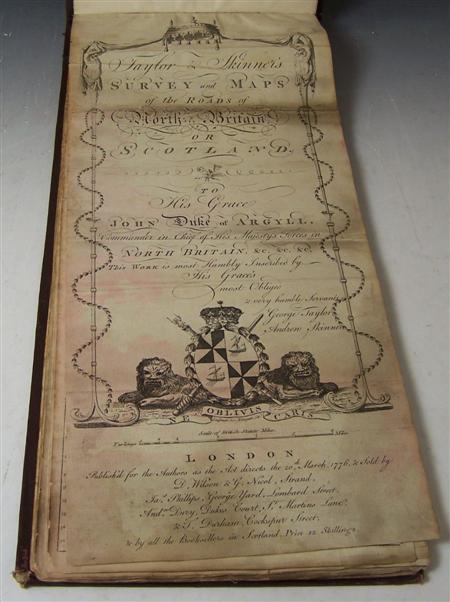 Taylor & Skinner's
SURVEY and MAPS
of the ROADS of
North Britain
OR
SCOTLAND.
TO
His Grace
JOHN Duke of ARGYLL,
Commander in Chief of His Majestys Forces in
NORTH BRITAIN, &c. &c. &c.
This WORK is most Humbly Inscribed by
His Grace's
most Obliged
& very humble Servants
George Taylor
Andrew Skinner
NE OBLIVIS CARIS
Scale of British Statute Miles.
Furlongs
Miles
LONDON
Publish'd for the Authors as the Act directs the 20th March, 1776. & Sold by
D. Wilson & G. Nicol, Strand,
Jas. Phillips, George Yard, Lombard Street,
Andw. Dury, Dukes Court, St. Martins Lane,
& T. Durham, Cockspur Street,
& by all the Booksellers in Scotland. Price 12 Shillings